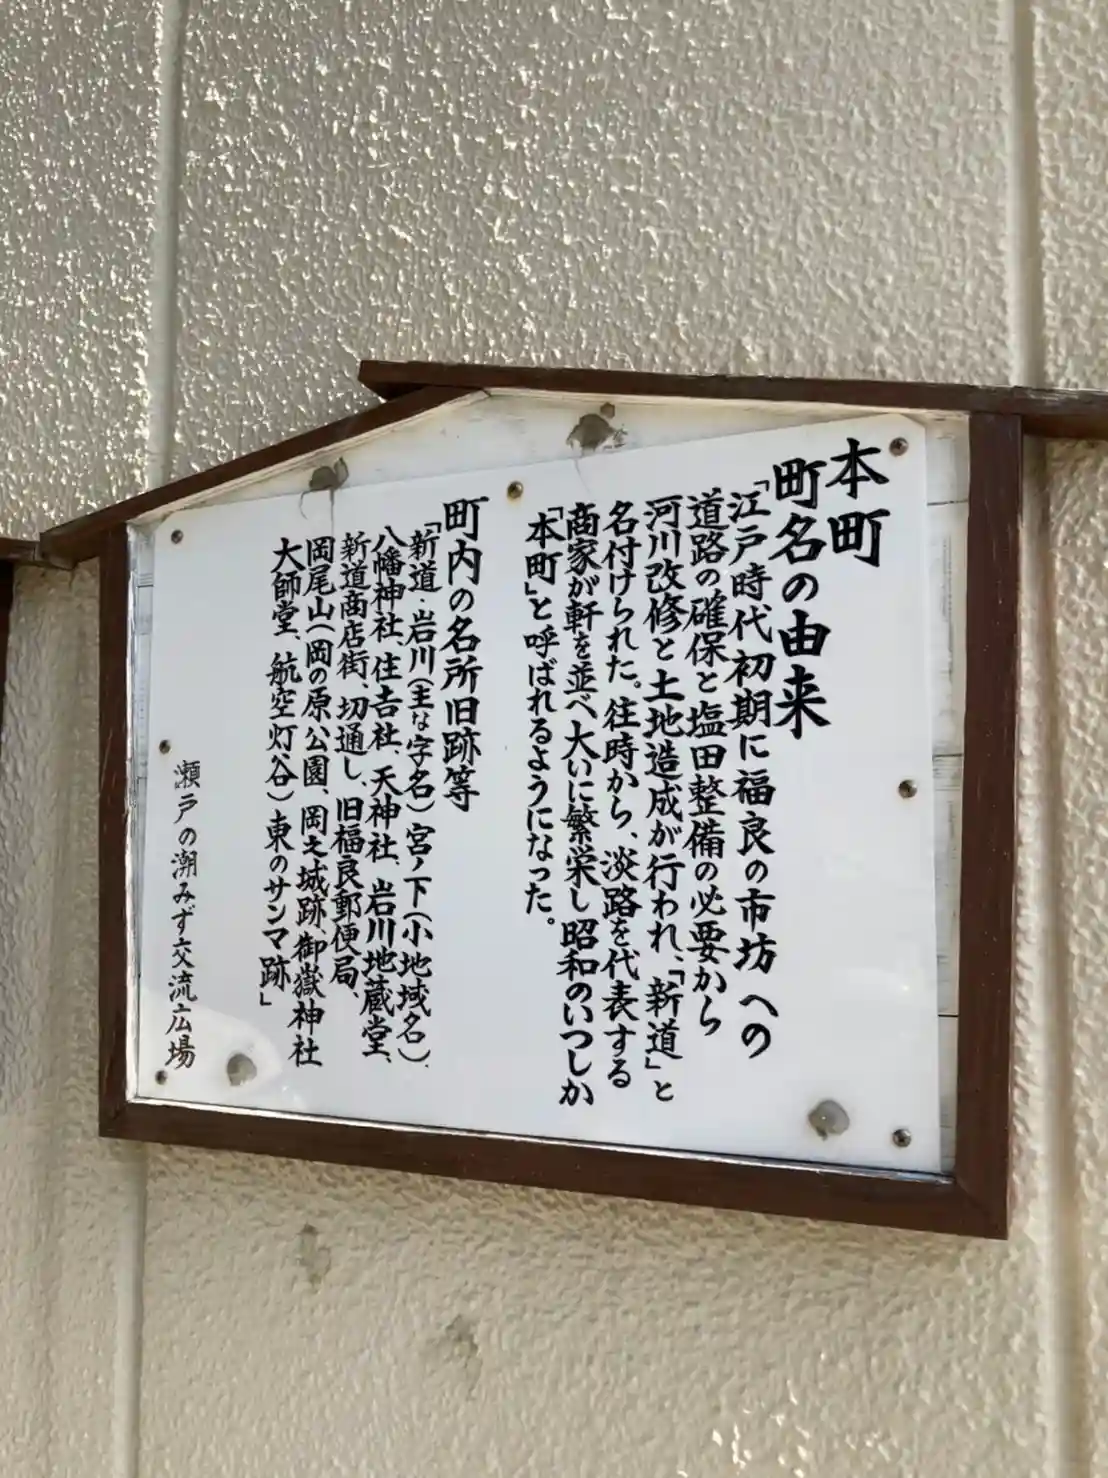 本町
町名の由来
「江戸時代初期に福良の市坊への
道路の確保と塩田整備の必要から
河川改修と土地造成が行われ、「新道」と
名付けられた。往時から、淡路を代表する
商家が軒を並べ大いに繁栄し昭和のいつしか
「本町」と呼ばれるようになった。
町内の名所旧跡等
「新道・岩川(主な字名)宮ノ下(小地域名)、
八幡神社、住吉社、天神社、岩川地蔵堂、
新道商店街、切通し、旧福良郵便局、
岡尾山(岡の原公園、岡之城跡、御嶽神社
大師堂、航空灯台)東のサンマ跡」
瀬戸の潮みず交流広場